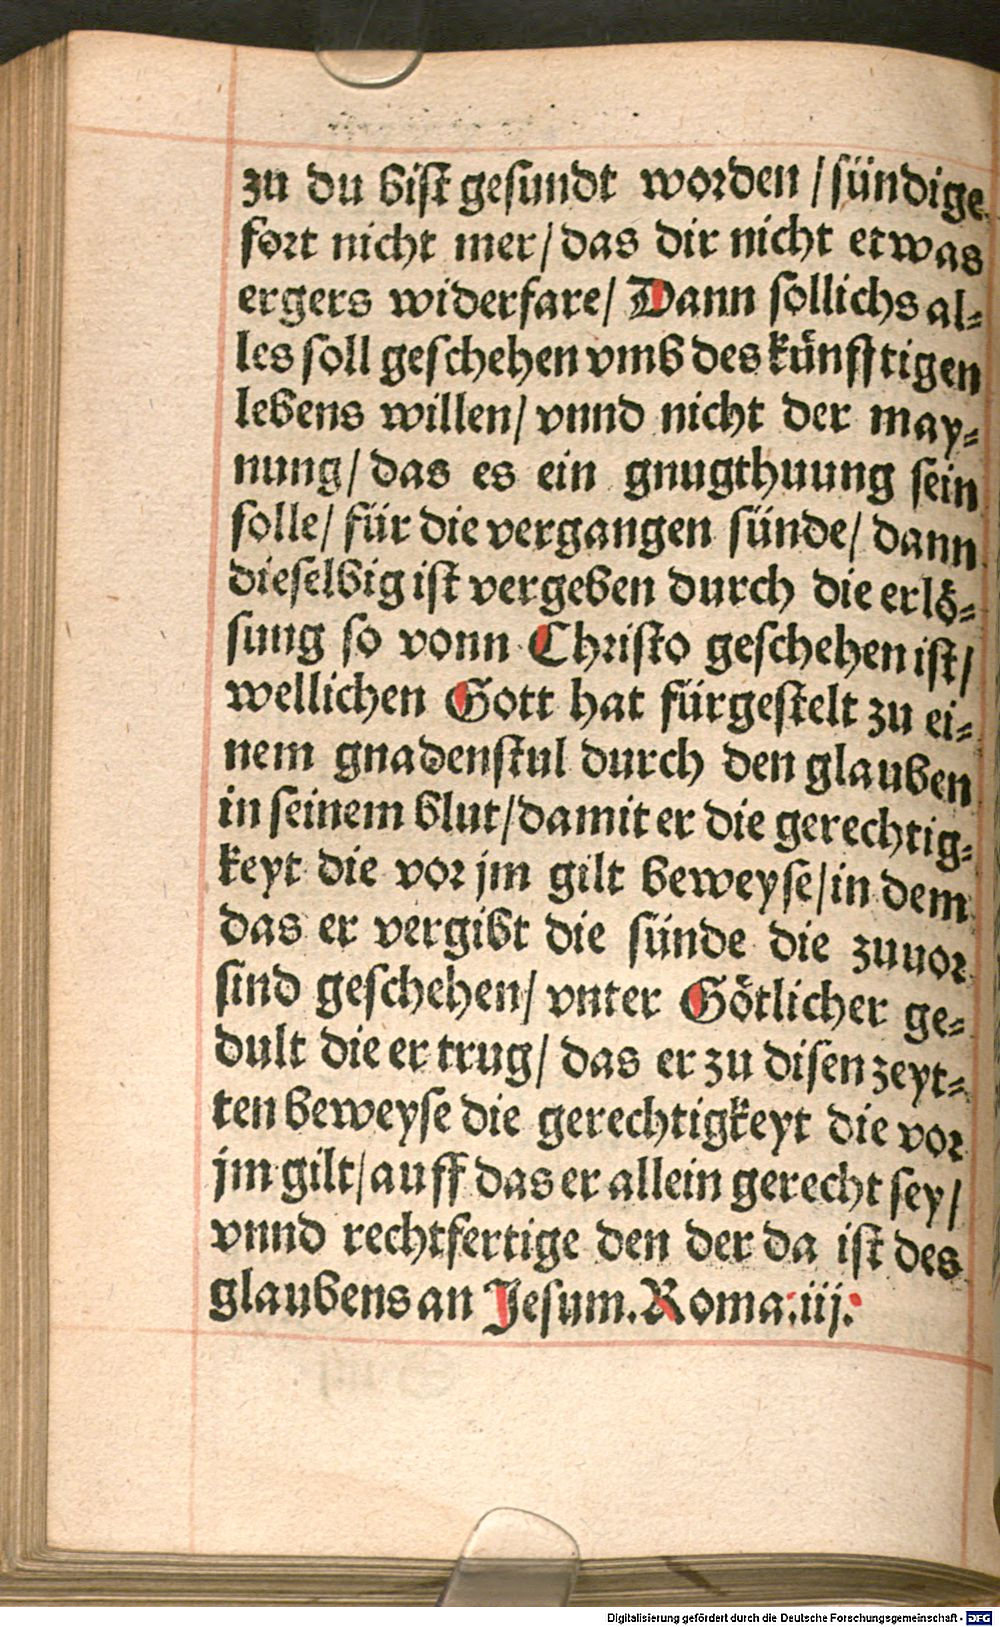 zu du bist gesundt worden / sündige
fort nicht mer / das dir nicht etwas
ergers widerfare / Dann sollichs al⸗
les soll geschehen vmb des künfftigen
lebens willen / vnnd nicht der may⸗
nung / das es ein gnugthuung sein
solle / für die vergangen sünde / dann
dieselbig ist vergeben durch die erlö⸗
sung so vonn Christo geschehen ist /
wellichen Gott hat fürgestelt zu ei⸗
nem gnadenstul durch den glauben
in seinem blut / damit er die gerechtig⸗
keyt die vor jm gilt beweyse / in dem
das er vergibt die sünde die zuuor
sind geschehen / vnter Götlicher ge⸗
dult die er trug / das er zu disen zeyt⸗
ten beweyse die gerechtigkeyt die vor
jm gilt / auff das er allein gerecht sey /
vnnd rechtfertige den der da ist des
glaubens an Jesum. Roma. iij.
Digitalisierung gefördert durch die Deutsche Forschungsgemeinschaft - DFG